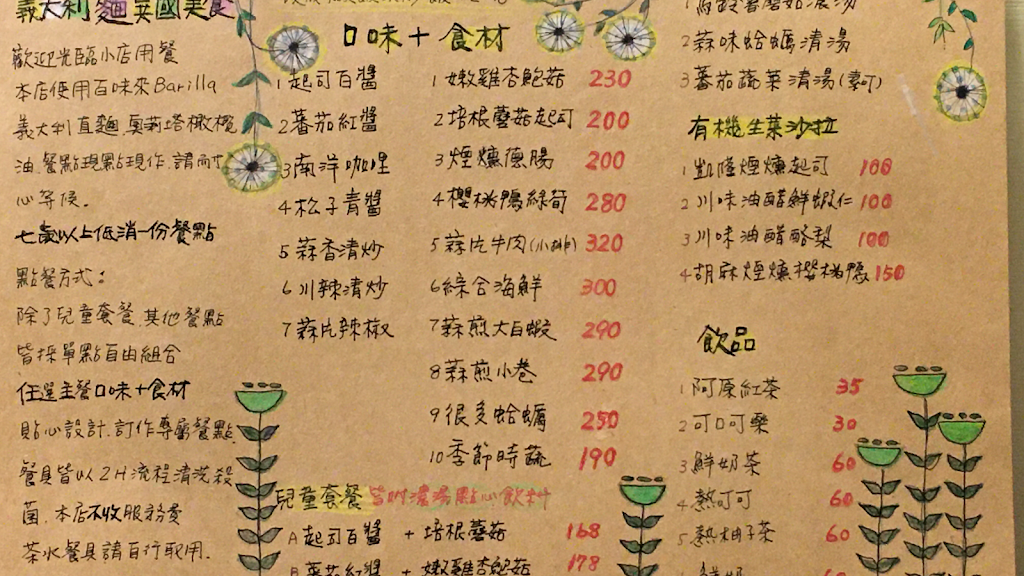 義大利麵異國美食
歡迎光臨小店用餐
本店使用百味來Barilla
義大利直麵,奧莉塔橄欖
油.餐點現點現作.請耐
心等候.
七歲以上低消一份餐點
點餐方式:
除了兒童套餐.其他餐點
皆採單點自由組合
任選主餐口味+食材
貼心設計.訂作專屬餐點.
餐具皆以2H流程清洗殺
菌.本店不收服務費
茶水餐具請自行取用.
口味+食材
1起司白醬
2蕃茄紅醬
3南洋咖哩
4松子青醬
5蒜香清炒
6川辣清炒
7蒜片辣椒
1嫩雞杏鮑菇 230
2培根蘑菇起司 200
3煙燻德腸 200
4櫻桃鴨綠筍 280
5蒜片牛肉(小排) 320
6綜合海鮮 300
7蒜煎大白蝦 290
8蒜煎小卷 290
9很多蛤蠣 250
10季節時蔬 190
兒童套餐 皆附濃湯點心飲料
A起司白醬 +培根蘑菇 168
B蕃茄紅醬 +嫩雞杏鮑菇 178
2蒜味蛤蠣清湯
3蕃茄蔬菜清湯(素可)
有機生菜沙拉
1凱薩煙燻起司 100
2川味油醋鮮蝦仁 100
3川味油醋酪梨 100
4胡麻煙燻櫻桃鴨 150
飲品
1阿原紅茶 35
2可口可樂 30
3鮮奶茶 60
4熱可可 60
5熱柚子茶 60